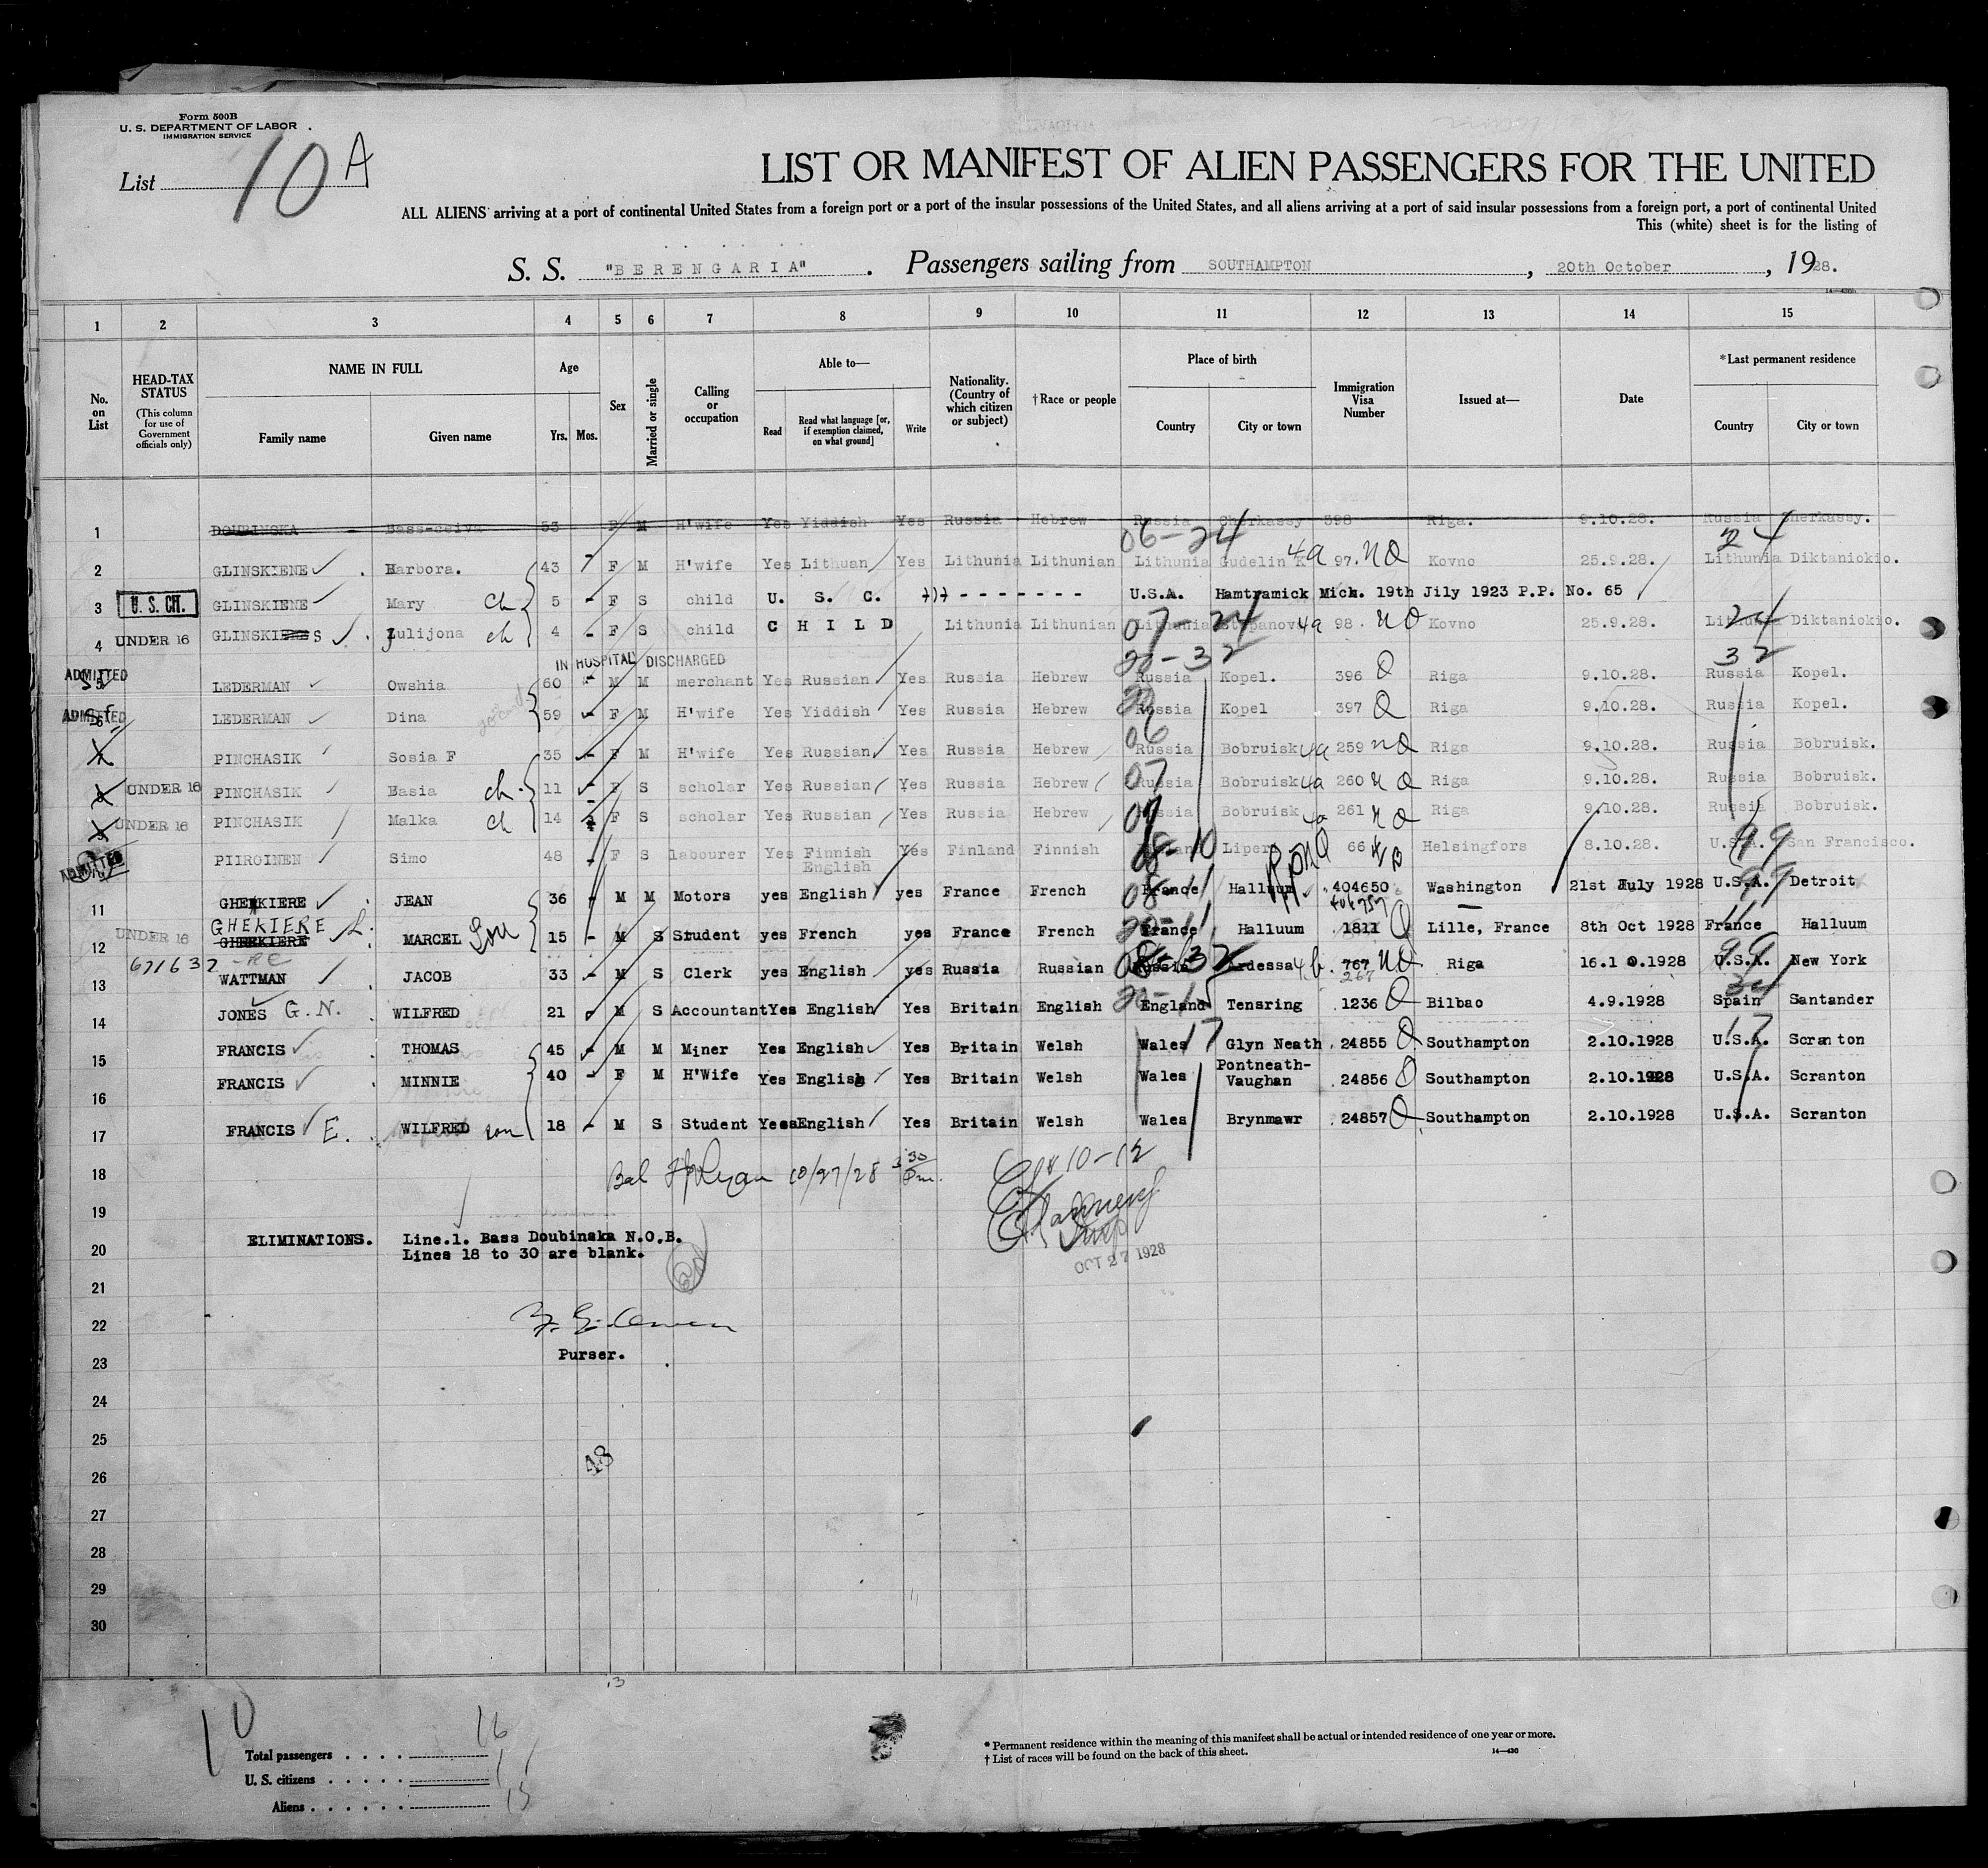 Form 500B
U. S. DEPARTMENT OF LABOR
IMMIGRATION SERVICE
List 10 A
LIST OR MANIFEST OF ALIEN PASSENGERS FOR THE UNITED
ALL ALIENS arriving at a port of continental United States from a foreign port or a port of the insular possessions of the United States, and all aliens arriving at a port of said insular possessions from a foreign port, a port of continental United
This (white) sheet is for the listing of
S. S. "BERENGARIA" . Passengers sailing from SOUTHAMPTON , 20th October , 1928.
1 2 3 4 5 6 7 8 9 10 11 12 13 14 15
No. on List
HEAD-TAX STATUS (This column for use of Government officials only)
NAME IN FULL
Family name Given name
Age
Yrs. Mos.
Sex
Married or single
Calling or occupation
Able to—
Read Read what language [or, if exemption claimed, on what ground] Write
Nationality. (Country of which citizen or subject)
†Race or people
Place of birth
Country City or town
Immigration Visa Number
Issued at—
Date
*Last permanent residence
Country City or town
1 DOUBINSKA Bass-ceiva 53 F M H'wife Yes Yiddish Yes Russia Hebrew Russia Cherkassy 398 Riga. 9.10.28. Russia Cherkassy.
06-24 24
2 GLINSKIENE Barbora. 43 F M H'wife Yes Lithuan Yes Lithunia Lithunian Lithunia Gudelin 4a 97. NQ Kovno 25.9.28. Lithunia Diktaniokio.
3 U. S. CH. GLINSKIENE Mary ch 5 - F S child U. S. C. - - - - - - - U.S.A. Hamtramick Mich. 19th Jily 1923 P.P. No. 65
4 UNDER 16 GLINSKIENES Zulijona ch 4 - F S child CHILD Lithunia Lithunian 07-24 Lithunia 4a 98. NQ Kovno 25.9.28. 24 Lithunia Diktaniokio.
IN HOSPITAL DISCHARGED 20-32 32
ADMITTED 5 LEDERMAN Owshia 60 - M M merchant Yes Russian Yes Russia Hebrew Russia Kopel. 396 Q Riga 9.10.28. Russia Kopel.
ADMITTED 6 LEDERMAN Dina 59 - F M H'wife Yes Yiddish Yes Russia Hebrew Russia Kopel 397 Q Riga 9.10.28. Russia Kopel.
7 PINCHASIK Sosia F 35 - F M H'wife Yes Russian Yes Russia Hebrew 06 Russia Bobruisk 4a 259 NQ Riga 9.10.28. Russia Bobruisk.
8 UNDER 16 PINCHASIK Basia ch. 11 - F S scholar Yes Russian Yes Russia Hebrew 07 Russia Bobruisk 4a 260 NQ Riga 9.10.28. Russia Bobruisk.
9 UNDER 16 PINCHASIK Malka ch 14 - F S scholar Yes Russian Yes Russia Hebrew 07 Bobruisk 4a 261 NQ Riga 9.10.28. Russia Bobruisk.
ADMITTED PIIROINEN Simo 48 - F S labourer Yes Finnish English Yes Finland Finnish 08-10 Liper 66 Helsingfors 8.10.28. U.S.A. 99 San Francisco.
11 GHEKIERE JEAN 36 - M M Motors yes English yes France French 08-11 France Halluum 404650 Washington 21st July 1928 U.S.A. 99 Detroit
GHEKIERE
12 UNDER 16 GHEKIERE MARCEL Son 15 - M S Student yes French yes France French 20-11 France Halluum 1811 Q Lille, France 8th Oct 1928 11 France Halluum
671637
13 WATTMAN JACOB 33 - M S Clerk yes English yes Russia Russian 08-32 Russia Ardessa 4b. 767 NQ Riga 16.10.1928 99 U.S.A. New York
14 JONES G.N. WILFRED 21 - M S Accountant Yes English Yes Britain English England Tensring 1236 Q Bilbao 4.9.1928 Spain Santander
15 FRANCIS THOMAS 45 - M M Miner Yes English Yes Britain Welsh Wales 17 Glyn Neath 24855 Q Southampton 2.10.1928 17 U.S.A. Scranton
16 FRANCIS MINNIE 40 - F M H'Wife Yes English Yes Britain Welsh Wales Pontneath-Vaughan 24856 Q Southampton 2.10.1928 U.S.A. Scranton
17 FRANCIS E. WILFRED son 18 - M S Student Yes English Yes Britain Welsh Wales Brynmawr 24857 Q Southampton 2.10.1928 U.S.A. Scranton
18 10/27/28 3 30 Pm. 10-12
19
20 ELIMINATIONS. Line.1. Bass Doubinska N.O.B.
Lines 18 to 30 are blank.
OCT 27 1928
21
22
23 Purser.
24
25
26 48
27
28
29
30
13
10
Total passengers . . . . 16
U. S. citizens . . . . . 1
Aliens . . . . . . 15
* Permanent residence within the meaning of this manifest shall be actual or intended residence of one year or more.
† List of races will be found on the back of this sheet.
14—430